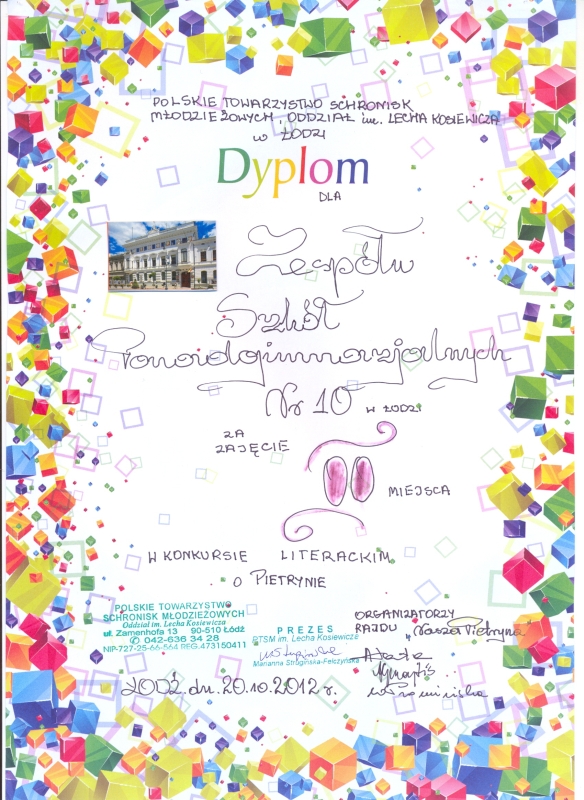 POLSKIE TOWARZYSTWO SCHRONISK
MŁODZIEŻOWYCH, ODDZIAŁ im. LECHA KOSIEWICZA
w ŁODZI
Dyplom
DLA
Zespołu
Szkół
Ponadgimnazjalnych
Nr 10 w ŁODZI
ZA
ZAJĘCIE
II
MIEJSCA
W KONKURSIE LITERACKIM
O PIETRYNIE
POLSKIE TOWARZYSTWO
SCHRONISK MŁODZIEŻOWYCH
Oddział im. Lecha Kosiewicza
ul. Zamenhofa 13 90-510 Łódź
✆ 042-636 34 28
NIP-727-25-66-564 REG.473150411
PREZES
PTSM im. Lecha Kosiewicza
Marianna Strugińska-Felczyńska
ORGANIZATORZY
RAJDU „Nasza Pietryna”
ŁÓDŹ, dn. 20.10.2012 r.